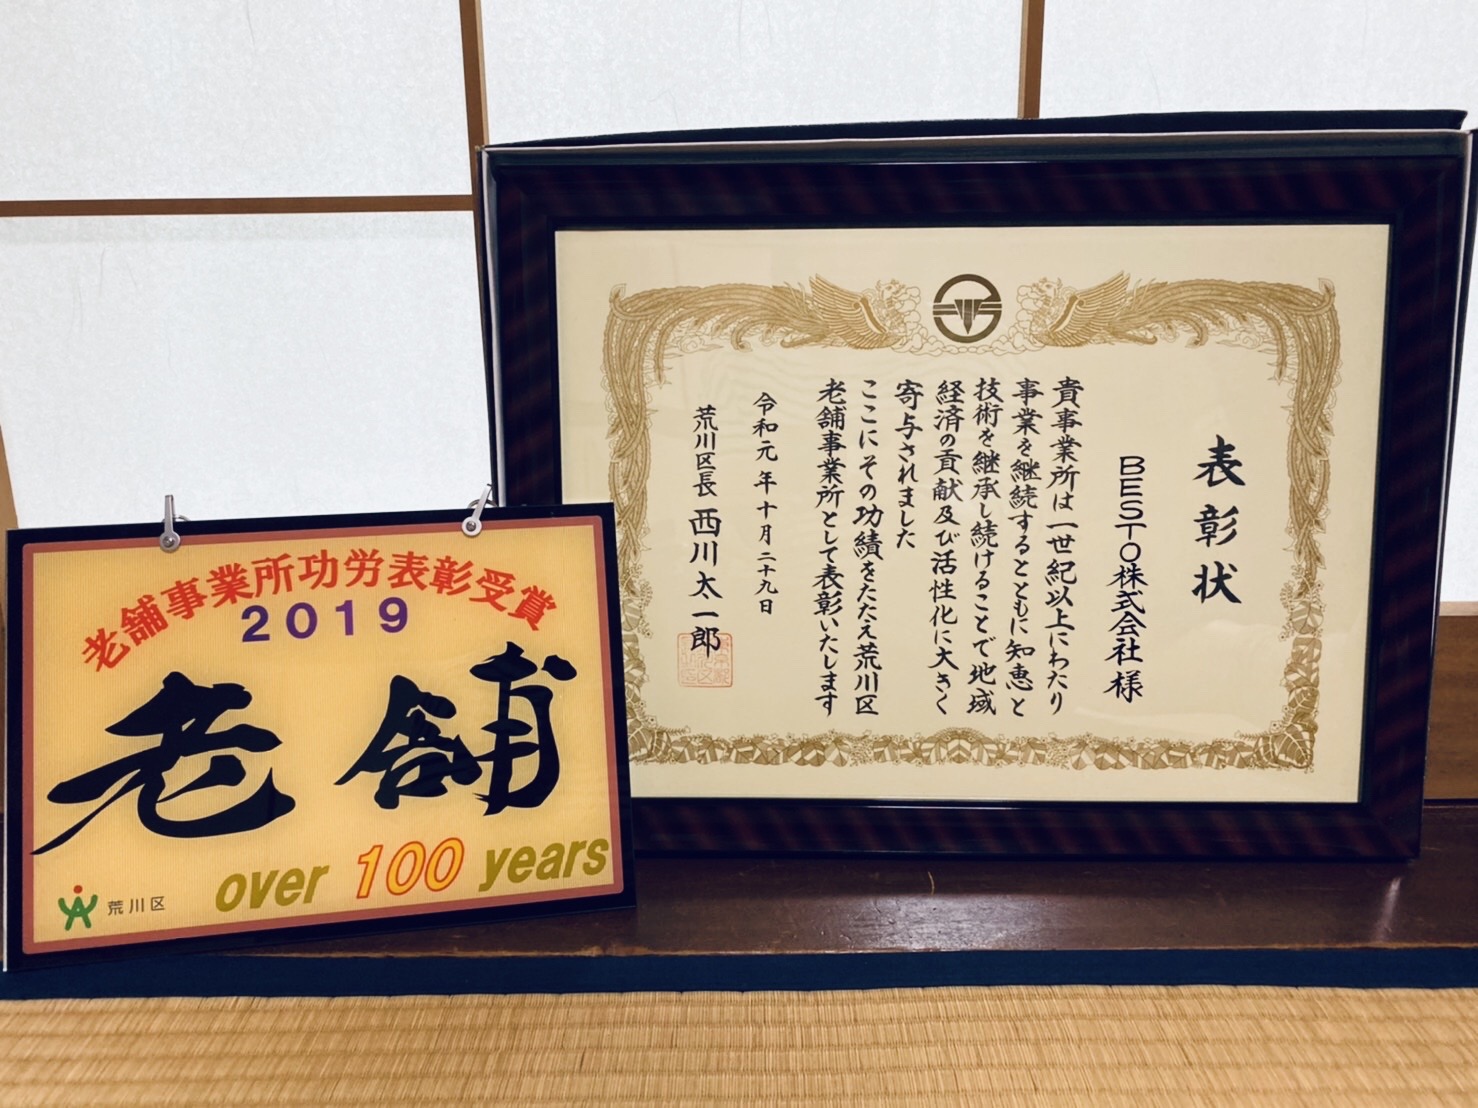 老舗事業所功労表彰受賞
2019
老舗
over 100 years
荒川区
表彰状
BESTO株式会社様
貴事業所は一世紀以上にわたり
事業を継続するとともに知恵と
技術を継承し続けることで地域
経済の貢献及び活性化に大きく
寄与されました
ここにその功績をたたえ荒川区
老舗事業所として表彰いたします
令和元年十月二十九日
荒川区長 西川太一郎